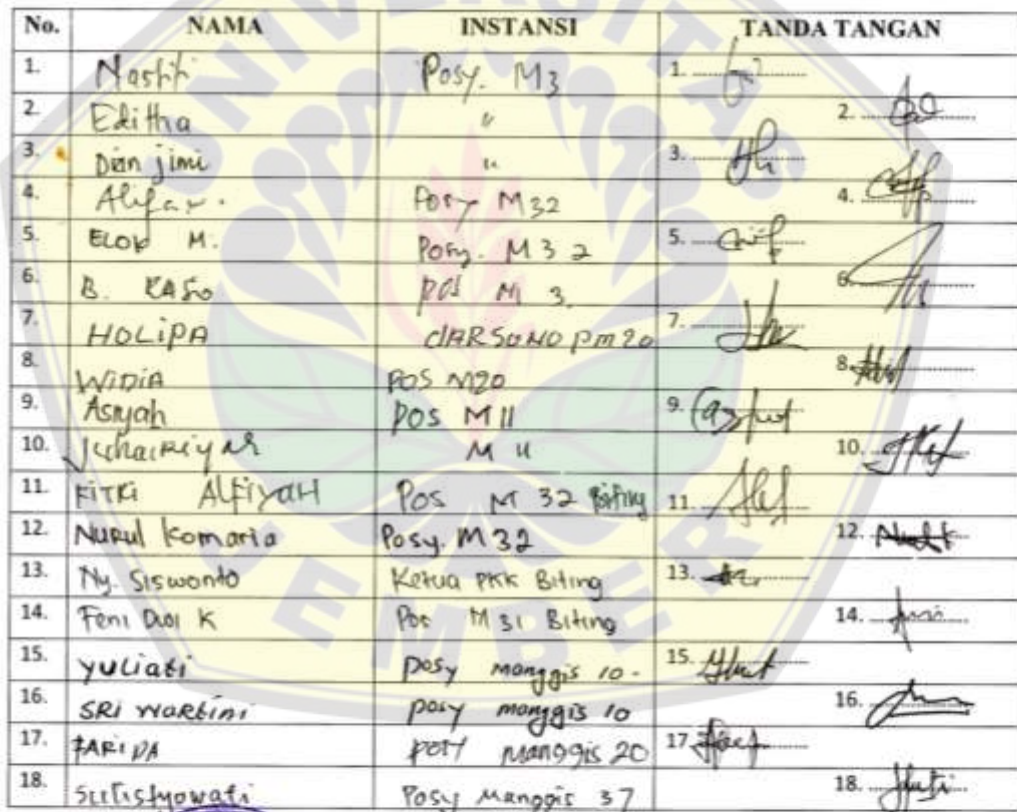 No. NAMA INSTANSI TANDA TANGAN
1. Posy. M3 1.
2. Editha " 2.
3. Dian jimi " 3.
4. Posy M32 4.
5. ELOK M. Posy. M32 5.
6. B. pos M 3. 6.
7. HOLIPA DARSONO PM20 7.
8. WIDIA POS M20 8.
9. Asiyah POS M11 9.
10. M 11 10.
11. FITRI ALFIYAH Pos M 32 Biting 11.
12. Nurul Komaria Posy. M32 12.
13. Ny. Siswonto Ketua PKK Biting 13.
14. Feni Dwi K Pos M 31 Biting 14.
15. yuliati posy manggis 10. 15.
16. SRI WARTINI posy manggis 10 16.
17. FARIDA posy manggis 20 17.
18. Sulistyowati Posy Manggis 37 18.
UNIVERSITAS
JEMBER